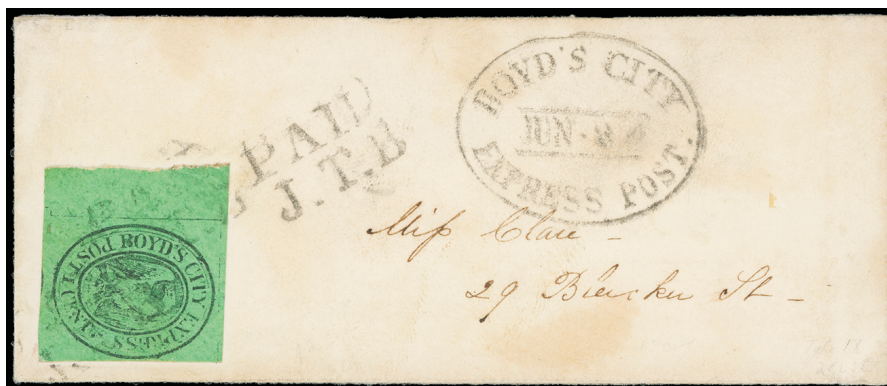 BOYD'S CITY
JUN 8
EXPRESS POST.
PAID
J.T.B
BOYD'S CITY EXPRESS POST
Miss Clare -
29 Bleecker St -